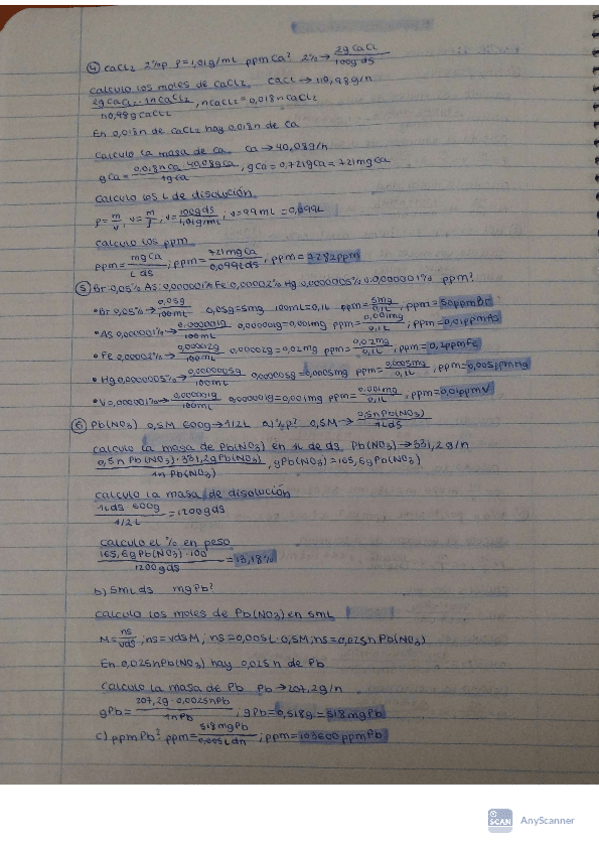 ④ CaCl2 2%p ρ=1,01g/mL ppm Ca? 2%→ 2g CaCl / 100g ds
Calculo los moles de CaCl2. CaCl→110,98g/n
2g CaCl2 · 1n CaCl2 / 110,98g CaCl2, nCaCl2=0,018n CaCl2
En 0,018n de CaCl2 hay 0,018n de Ca
Calculo la masa de Ca Ca→40,08g/n
gCa= 0,018n Ca · 40,08g Ca / 1g Ca, gCa=0,721g Ca=721mg Ca
Calculo los L de disolución
ρ=m/v, v=m/ρ, v=100g ds / 1,01g/mL; v=99mL=0,099L
Calculo los ppm
ppm= mg Ca / L ds; ppm= 721mg Ca / 0,099L ds, ppm=7282ppm
⑤ Br:0,05% As:0,000001% Fe:0,00002% Hg:0,0000005% V:0,000001% ppm?
• Br 0,05%→ 0,05g / 100mL 0,05g=5mg 100mL=0,1L ppm= 5mg / 0,1L, ppm=50ppm Br
• As 0,000001%→ 0,000001g / 100mL 0,000001g=0,001mg ppm= 0,001mg / 0,1L, ppm=0,01ppm As
• Fe 0,00002%→ 0,00002g / 100mL 0,00002g=0,02mg ppm= 0,02mg / 0,1L, ppm=0,2ppm Fe
• Hg 0,0000005%→ 0,0000005g / 100mL =0,005mg ppm= / 0,1L, ppm=0,005ppm Hg
• V 0,000001%→ 0,000001g / 100mL 0,000001g=0,001mg ppm= 0,001mg / 0,1L, ppm=0,01ppm V
⑥ Pb(NO3) 0,5M 600g→1/2L a) %p? 0,5M→ 0,5n Pb(NO3) / 1L ds
Calculo la masa de Pb(NO3) en 1L de ds. Pb(NO3)→331,2g/n
0,5n Pb(NO3) · 331,2g Pb(NO3) / 1n Pb(NO3), gPb(NO3)=165,6g Pb(NO3)
Calculo la masa de disolución
1L ds 600g / 1/2L =1200g ds
Calculo el % en peso
165,6g Pb(NO3) · 100 / 1200g ds =13,18%
b) 5mL ds mg Pb?
Calculo los moles de Pb(NO3) en 5mL
M= ns / Vds; ns=Vds M; ns=0,005L · 0,5M; ns=0,025n Pb(NO3)
En 0,025n Pb(NO3) hay 0,025n de Pb
Calculo la masa de Pb Pb→207,2g/n
gPb= 207,2g · 0,0025n Pb / 1n Pb; gPb=0,518g=518mg Pb
c) ppm Pb? ppm= 518mg Pb / 0,005L dn; ppm=103600ppm Pb
SCAN AnyScanner